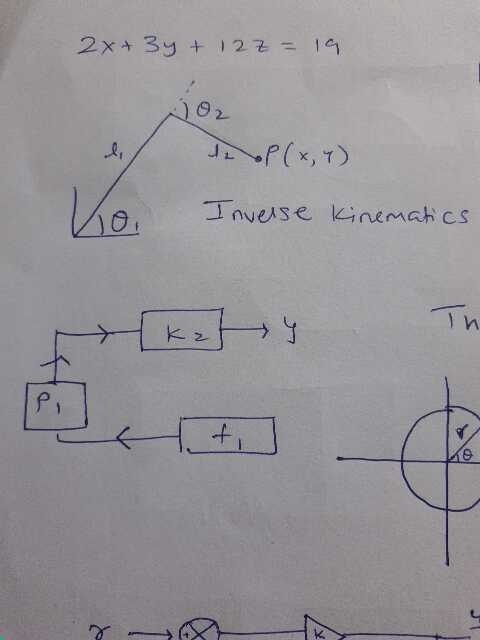 2x + 3y + 12z = 19
θ2
l1
l2
P(x, y)
θ1
Inverse kinematics
K2
y
P1
f1
Th
r
θ
r
K